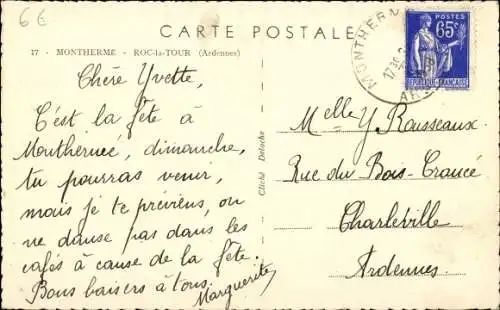 6€
CARTE POSTALE
17 - MONTHERME - ROC-la-TOUR (Ardennes)
POSTES
65c
REPUBLIQUE FRANÇAISE
MONTHERM
1730
ARD
Chère Yvette,
C'est la fête à
Monthermé, dimanche,
tu pourras venir,
mais je te préviens, on
ne danse pas dans les
cafés à cause de la fête.
Bons baisers à tous.
Marguerite
Cliché Detoche
Melle Y Rousseaux
Rue du Bois-Crancé
Charleville
Ardennes